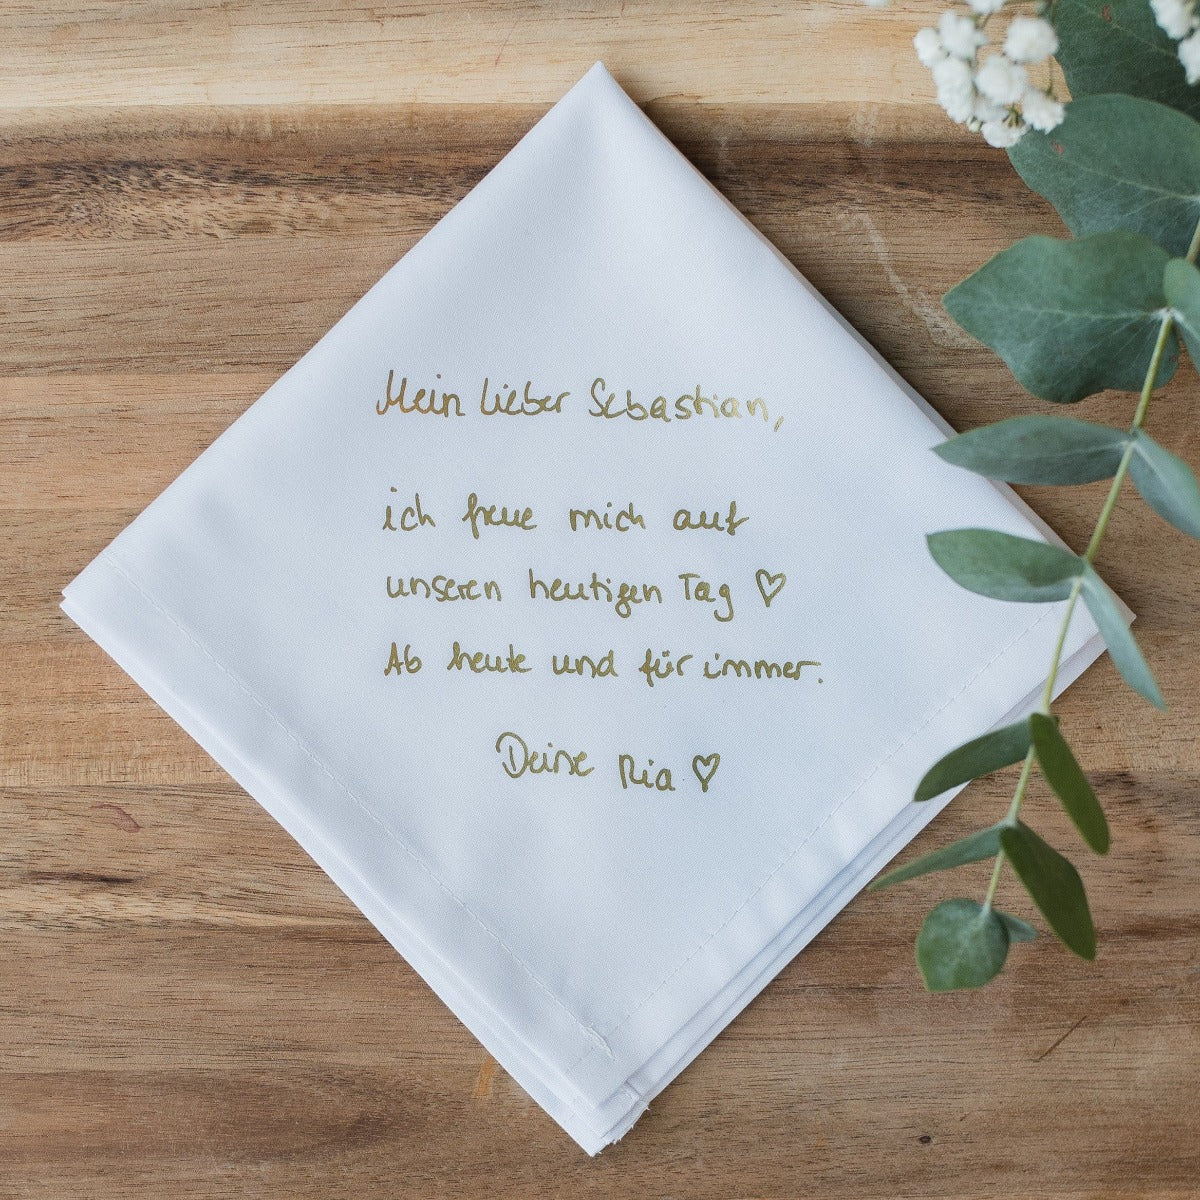 Mein lieber Sebastian,
ich freue mich auf
unseren heutigen Tag ♡
Ab heute und für immer.
Deine Ria ♡